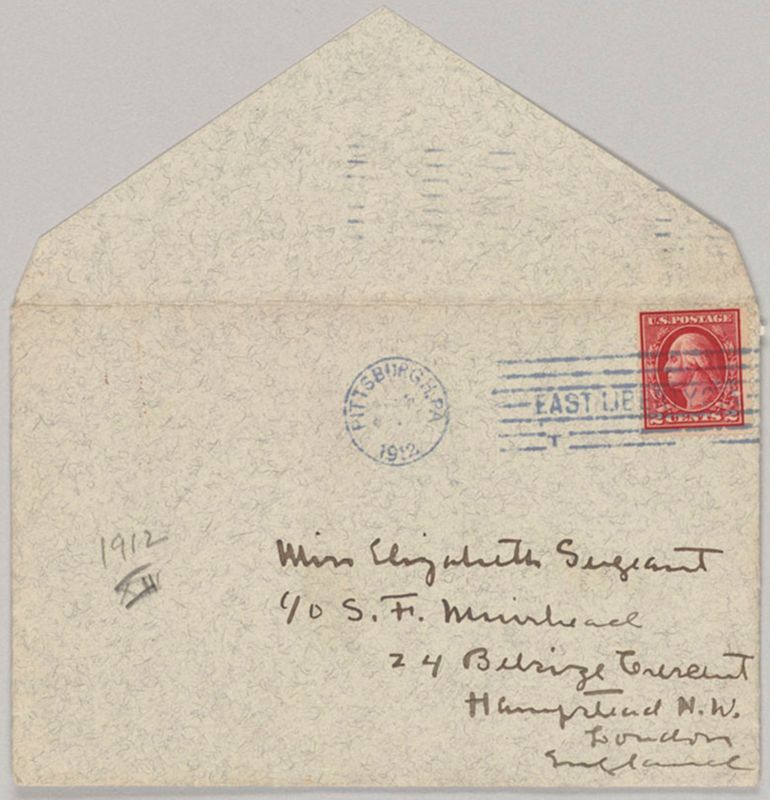 U.S. POSTAGE
2 CENTS 2
PITTSBURGH, PA
1912
EAST LIBERTY
1912
XII
Miss Elizabeth Sergeant
c/o S. F. Muirhead
24 Belsize Crescent
Hampstead N.W.
London
England